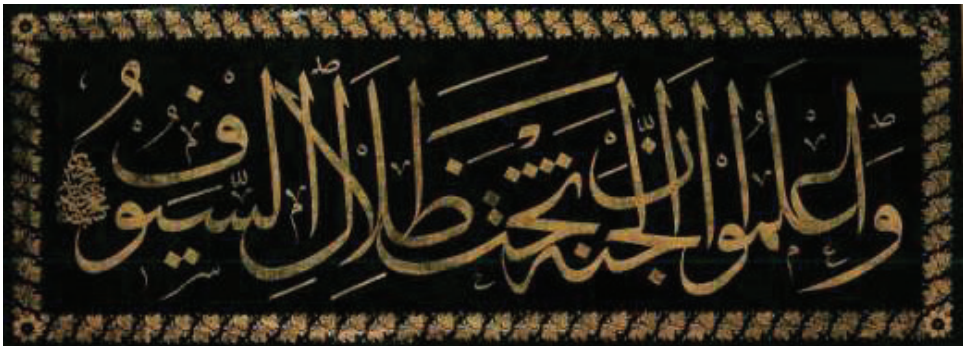 واعلموا ان الجنة تحت ظلال السيوف